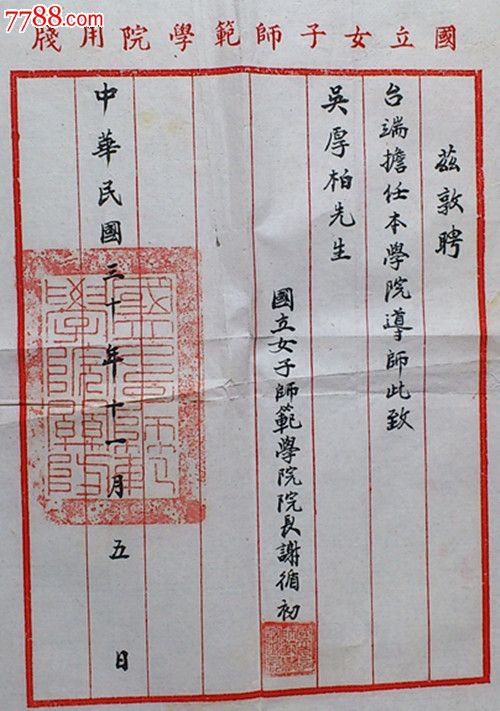 7788.com
國立女子師範學院用牋
茲敦聘
台端擔任本學院導師此致
吳厚柏先生
國立女子師範學院院長謝循初
中華民國三十年十一月五日